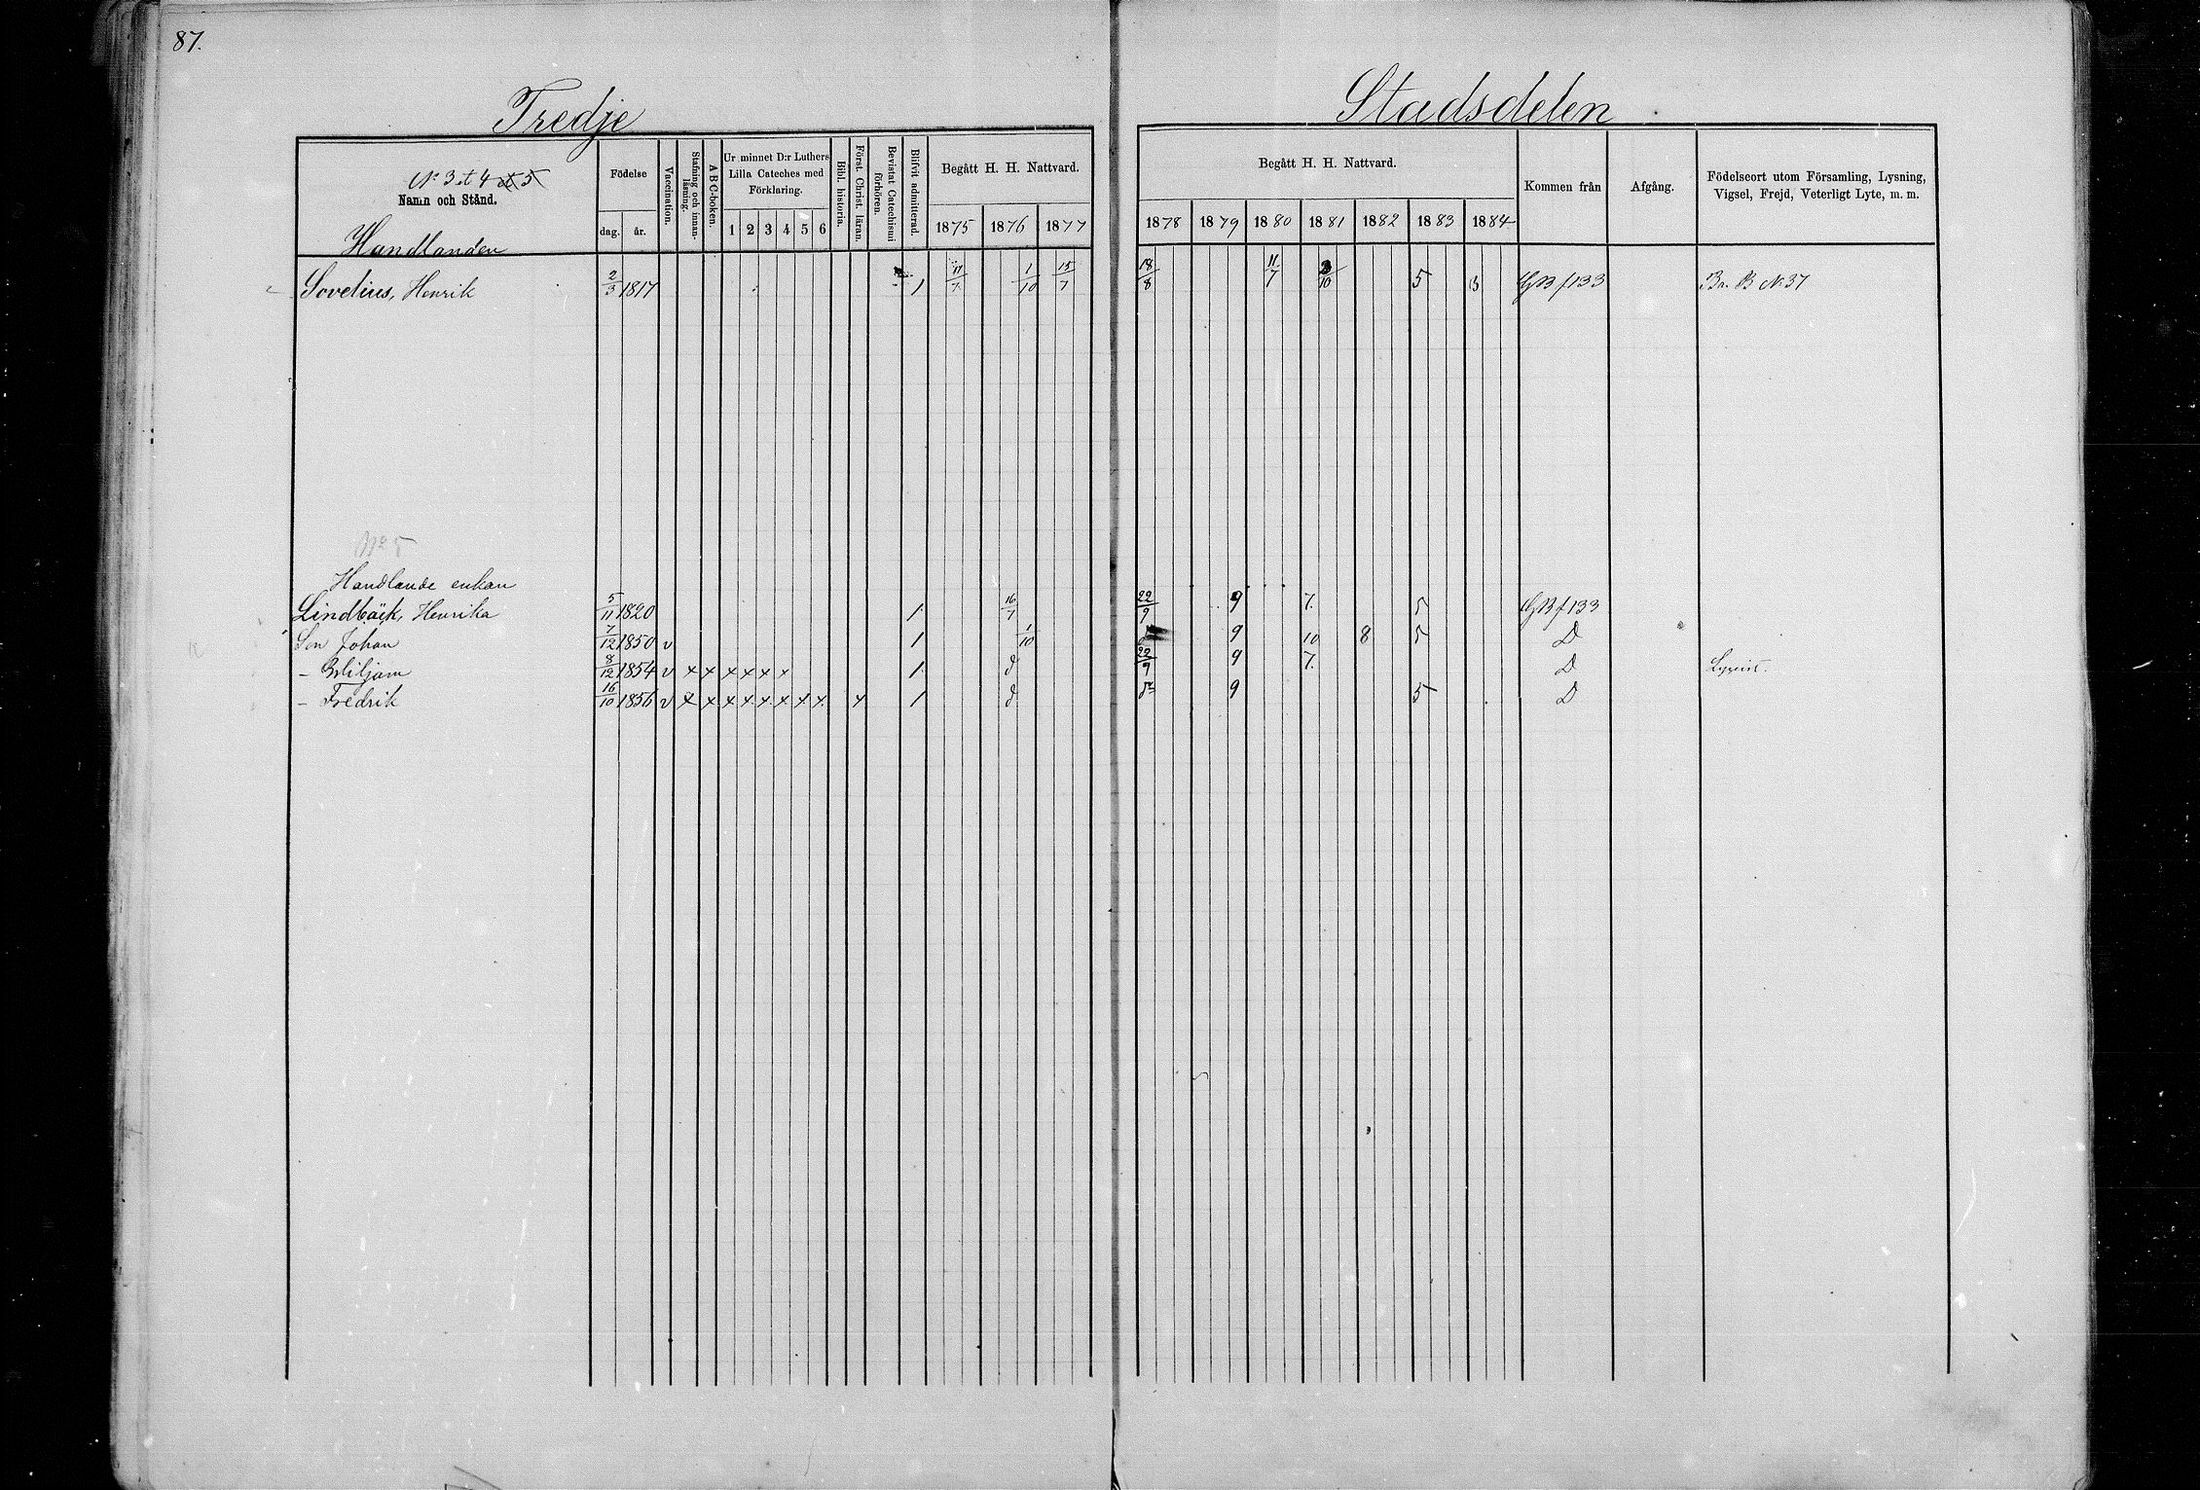 87.
Tredje Stadsdelen
No 3 et 4 et 5
Namn och Stånd.
Födelse
dag. år.
Vaccination.
Stafning och innanläsning.
A B C-boken.
Ur minnet D:r Luthers Lilla Cateches med Förklaring.
1 2 3 4 5 6
Bibl. historia.
Först. Christ. läran.
Bevistat Catechismi förhören.
Blifvit admitterad.
Begått H. H. Nattvard.
1875 1876 1877
Begått H. H. Nattvard.
1878 1879 1880 1881 1882 1883 1884
Kommen från
Afgång.
Födelseort utom Församling, Lysning, Vigsel, Frejd, Veterligt Lyte, m. m.
Handlanden
Sovelius, Henrik 2/3 1817 1 11/7 1/10 15/7 18/8 11/7 2/10 5 GB f 133 Br. B No 37
No 5
Handlande enkan
Lindbäck, Henrika 5/11 1820 1 16/7 22/9 9 7. 5 GB f 133
Son Johan 7/12 1850 v 1 1/10 9 10 8 5 D
- Wiljam 8/12 1854 v x x x x x x 1 d 22/9 9 7. D
- Fredrik 16/10 1856 v x x x x x x x x x 1 d 9 5 D